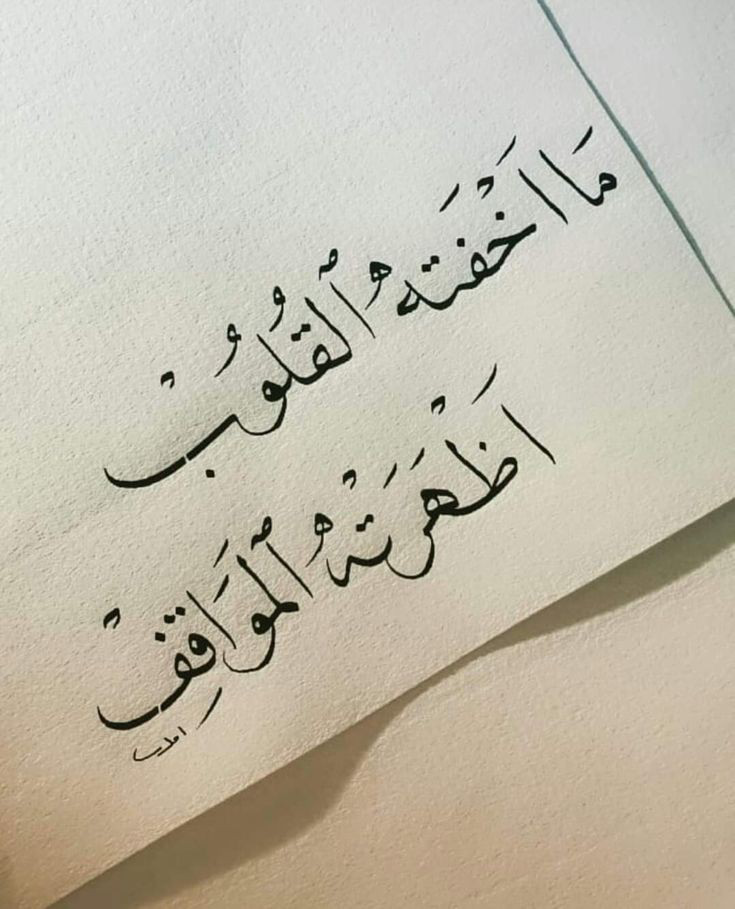 مَا اَخْفَتهُ ٱلقُلُوُبْ
اَظْهَرَتْهُ ٱلموَاقِفْ